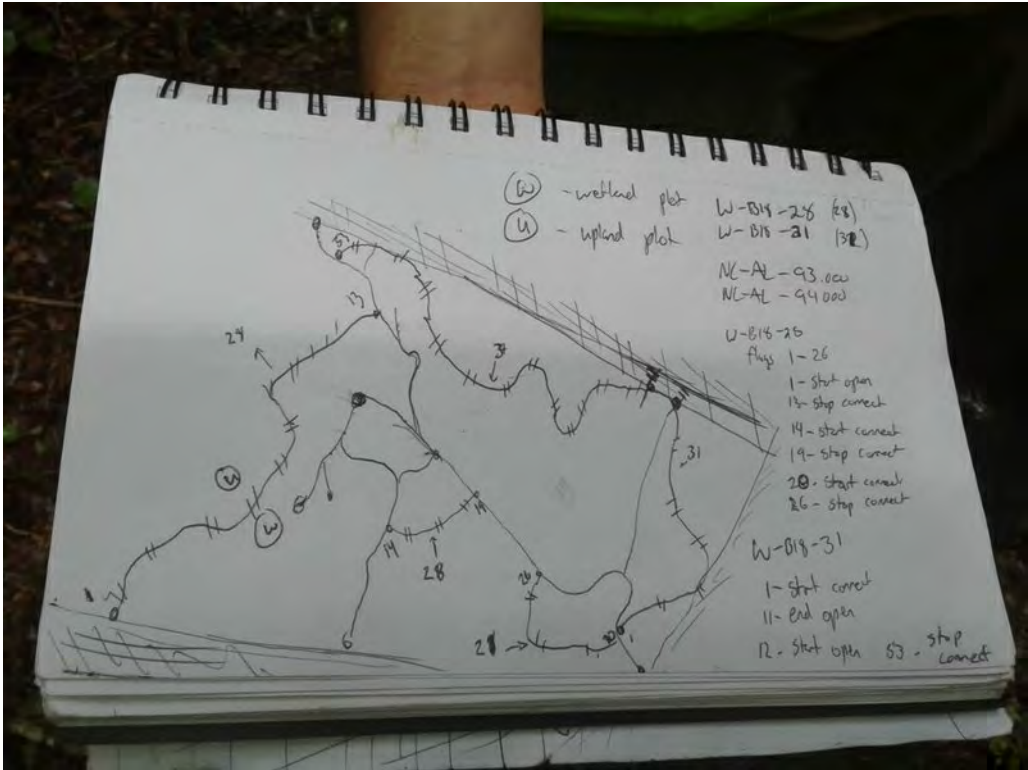 W - wetland plot
U - upland plot
W-B18-28 (28)
W-B18-31
NC-AL-93.000
NC-AL-94000
W-B18-28
flags 1-26
1- start open
13- stop connect
14- start connect
19- stop connect
20- start connect
26- stop connect
W-B18-31
1- start connect
11- end open
12- start open 53- stop connect
13
28
31
U
W
14
19
28
26
1
1